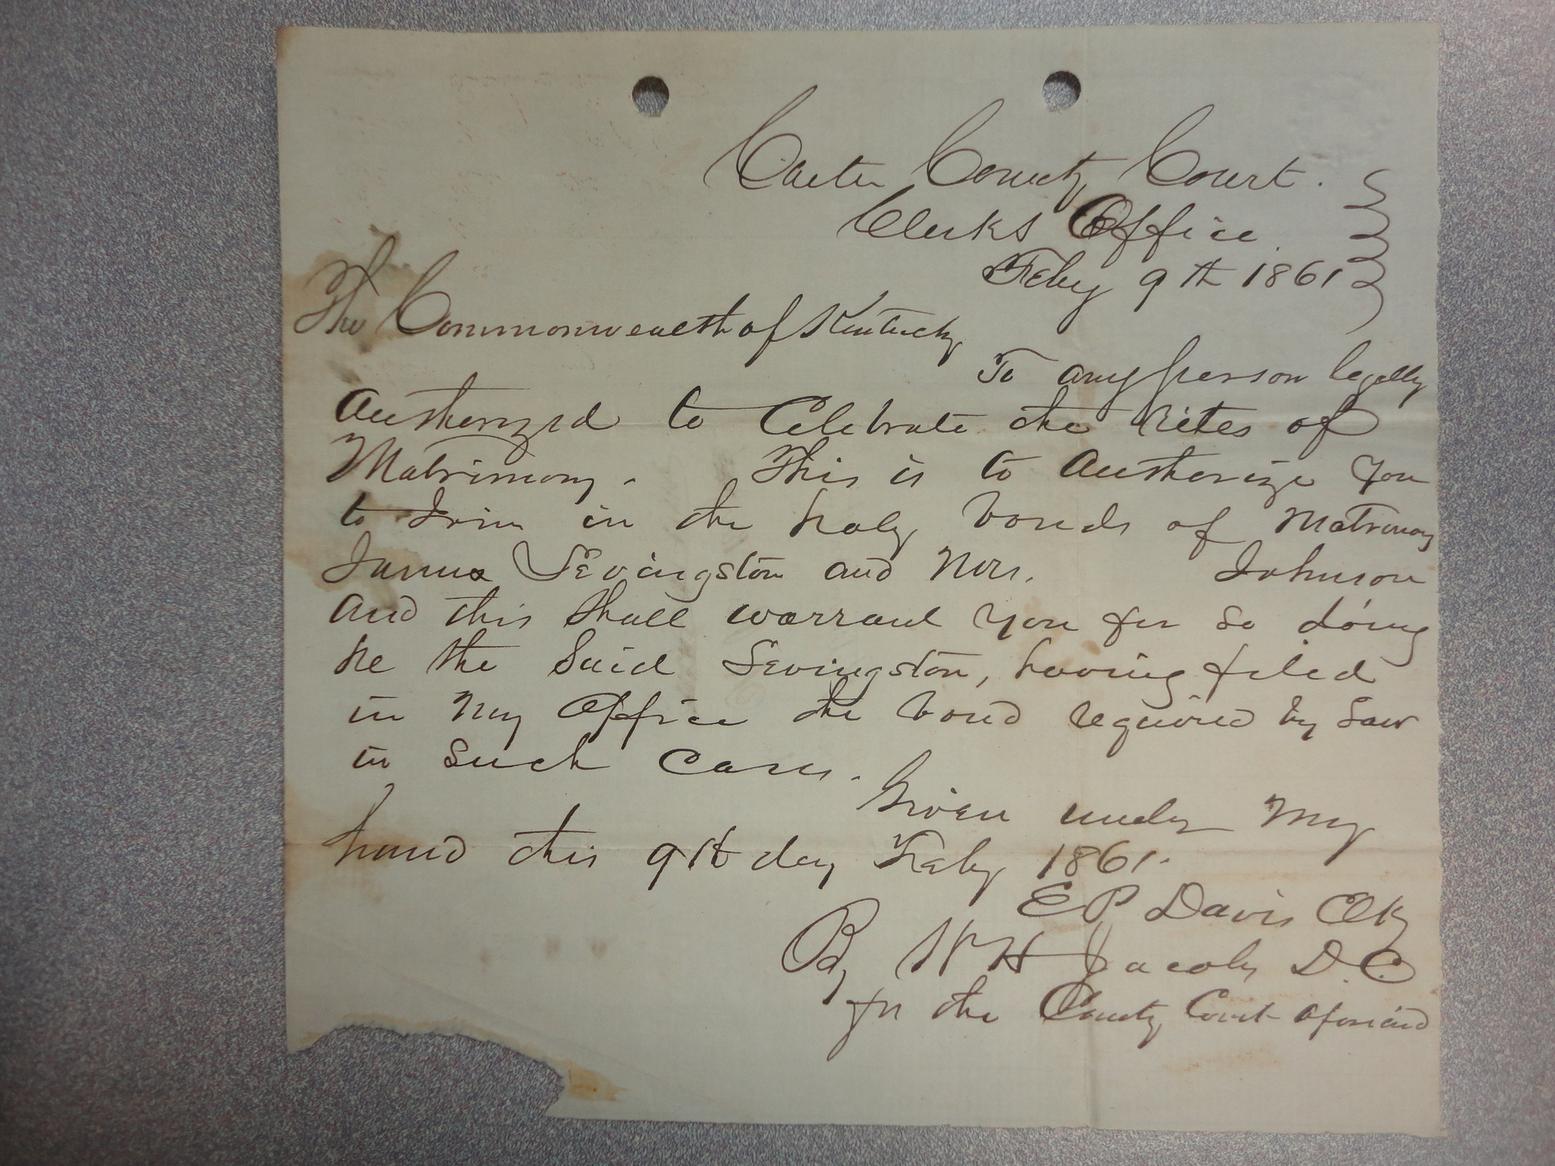 Carter County Court.
Clerks Office.
Feby 9th 1861
The Commonwealth of Kentucky
To any person legally
Authorized to Celebrate the Rites of
Matrimony. This is to Authorize You
to Join in the holy bonds of Matrimony
James Levingston and Mrs. Johnson
and this Shall warrant You for So doing
he the Said Levingston, having filed
in My Office the bond required by Law
in Such Cases.
Given under My
hand this 9th day Feby 1861.
E P Davis Clk
By W H Jacobs D.C.
for the County Court aforesaid